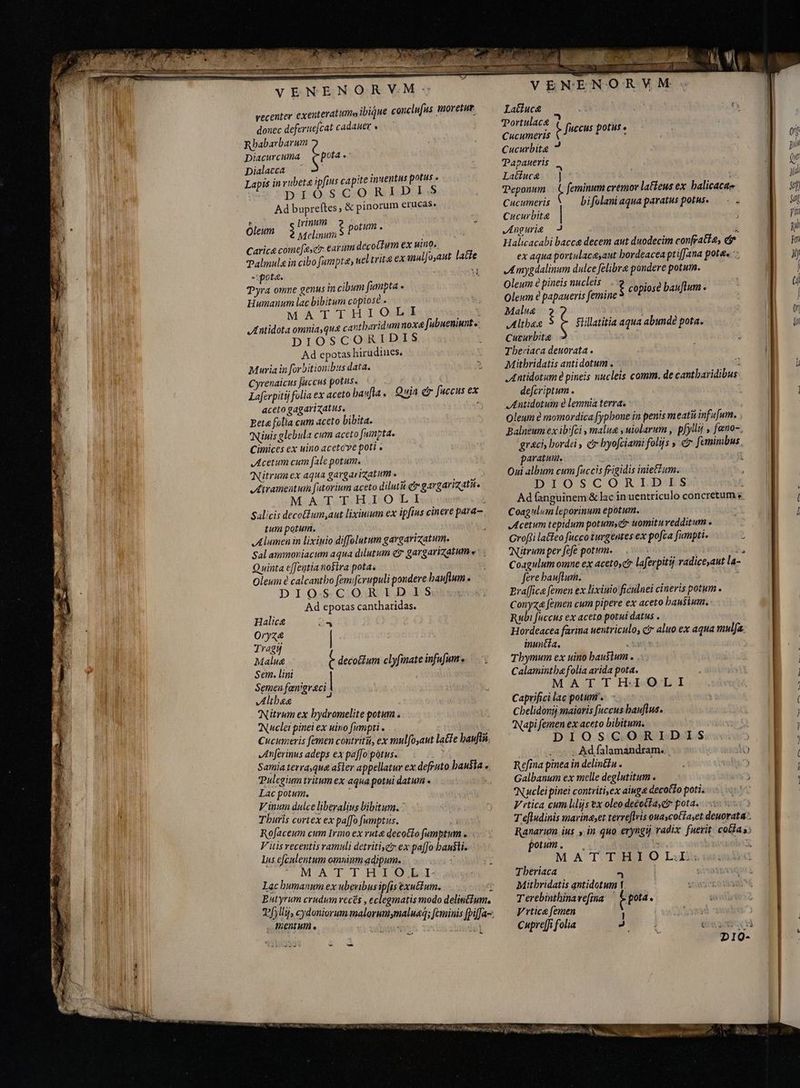 VENENORVM.
recenter exenteratum, ibique conclusus moretur
donec deferuescat cadauer.
Rhabarbarum
Diacurcuma } pota.
Dialacca
Lapis in rubetæ ipsius capite inuentus potus.
DIOSCORIDIS
Ad buprestes, & pinorum erucas.
Oleum { Irinum } potum.
{ Melinum }
Caricæ comesæ, & earum decoctum ex uino.
Palmulæ in cibo sumptæ, uel tritæ ex mulso, aut lacte
potæ.
Pyra omne genus in cibum sumpta.
Humanum lac bibitum copiose.
MATTHIOLI
Antidota omnia, quæ cantharidum noxæ subueniunt.
DIOSCORIDIS
Ad epotas hirudines.
Muria in sorbitionibus data.
Cyrenaicus succus potus.
Laserpitij folia ex aceto hausta. Quin & succus ex
aceto gagarizatus.
Betæ folia cum aceto bibita.
Niuis glebula cum aceto sumpta.
Cimices ex uino acetove poti.
Acetum cum sale potum.
Nitrum ex aqua gargarizatum.
Atramentum sutorium aceto dilutū & gargarizatū.
MATTHIOLI
Salicis decoctum, aut lixiuium ex ipsius cinere para-
tum potum.
Alumen in lixiuio dissolutum gargarizatum.
Sal ammoniacum aqua dilutum & gargarizatum.
Quinta essentia nostra pota.
Oleum è calcantho semiscrupuli pondere haustum.
DIOSCORIDIS
Ad epotas cantharidas.
Halicæ
Oryzæ
Tragij
Maluæ } decoctum clysmate infusum.
Sem. lini
Semen fœnigræci
Altheæ
Nitrum ex hydromelite potum.
Nuclei pinei ex uino sumpti.
Cucumeris semen contritū, ex mulso, aut lacte haustū.
Anserinus adeps ex passo potus.
Samia terra, quæ aster appellatur ex defruto hausta.
Pulegium tritum ex aqua potui datum.
Lac potum.
Vinum dulce liberalius bibitum.
Thuris cortex ex passo sumptus.
Rosaceum cum Irino ex rutæ decocto sumptum.
Vitis recentis ramuli detriti, & ex passo hausti.
Ius esculentum omnium adipum.
MATTHIOLI
Lac humanum ex uberibus ipsis exuctum.
Butyrum crudum recēs, eclegmatis modo delinctum.
Psyllij, cydoniorum malorum, maluæq; seminis spissa-
mentum.
VENENORVM
Lactucæ
Portulacæ
Cucumeris } succus potus.
Cucurbitæ
Papaueris
Lactucæ
Peponum } seminum cremor lacteus ex halicaca-
Cucumeris bi solani aqua paratus potus.
Cucurbitæ
Anguriæ
Halicacabi baccæ decem aut duodecim confractæ, &
ex aqua portulacæ, aut hordeacea ptissana potæ.
Amygdalinum dulce selibræ pondere potum.
Oleum è pineis nucleis } copiosè haustum.
Oleum è papaueris semine
Maluæ
Altheæ } stillatitia aqua abundè pota.
Cucurbitæ
Theriaca deuorata.
Mithridatis antidotum.
Antidotum è pineis nucleis comm. de cantharidibus
descriptum.
Antidotum è lemnia terra.
Oleum è momordica syphone in penis meatū infusum.
Balneum ex ibisci, maluæ, uiolarum, psyllij, fœno-
græci, hordei, & hyosciami folijs, & seminibus
paratum.
Oui album cum succis frigidis iniectum.
DIOSCORIDIS
Ad sanguinem & lac in uentriculo concretum.
Coagulum leporinum epotum.
Acetum tepidum potum, & uomitu redditum.
Grossi lacteo succo turgentes ex posca sumpti.
Nitrum per sese potum.
Coagulum omne ex aceto, & laserpitij radice, aut la-
sere haustum.
Brassicæ semen ex lixiuio ficulnei cineris potum.
Conyzæ semen cum pipere ex aceto haustum.
Rubi succus ex aceto potui datus.
Hordeacea farina uentriculo, & aluo ex aqua mulsa
inuncta.
Thymum ex uino haustum.
Calaminthæ folia arida pota.
MATTHIOLI
Caprifici lac potum.
Chelidonij maioris succus haustus.
Napi semen ex aceto bibitum.
DIOSCORIDIS
Ad salamandram.
Resina pinea in delinctu.
Galbanum ex melle deglutitum.
Nuclei pinei contriti, ex aiuga decocto poti.
Vrtica cum lilijs ex oleo decocta, & pota.
Testudinis marinæ, et terrestris oua, cocta, et deuorata.
Ranarum ius, in quo eryngij radix fuerit cocta,
potum.
MATTHIOLI.
Theriaca
Mithridatis antidotum
Terebinthina resina } pota.
Vrticæ semen
Cupressi folia
DIO-